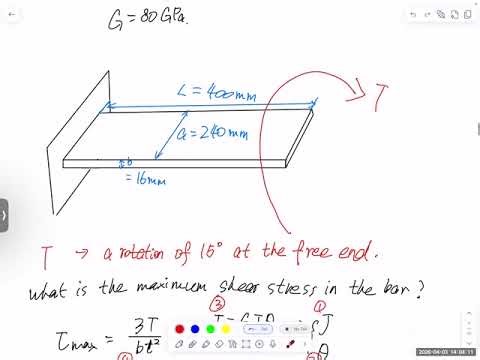 G = 80 GPa.
L = 400mm
T
a = 240mm
b
= 16mm
T → a rotation of 15° at the free end.
What is the maximum shear stress in the bar?
③ ①
τmax = 3T / bt²
2020-04-03 14:04:11